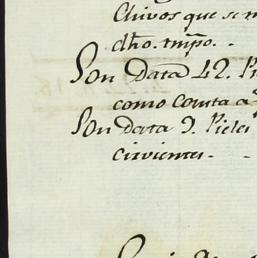 Chivos que se m
dho. tmpo. -
Son Data 42. Pi
como consta a
Son data 9. Pieles
cirvientes. - -